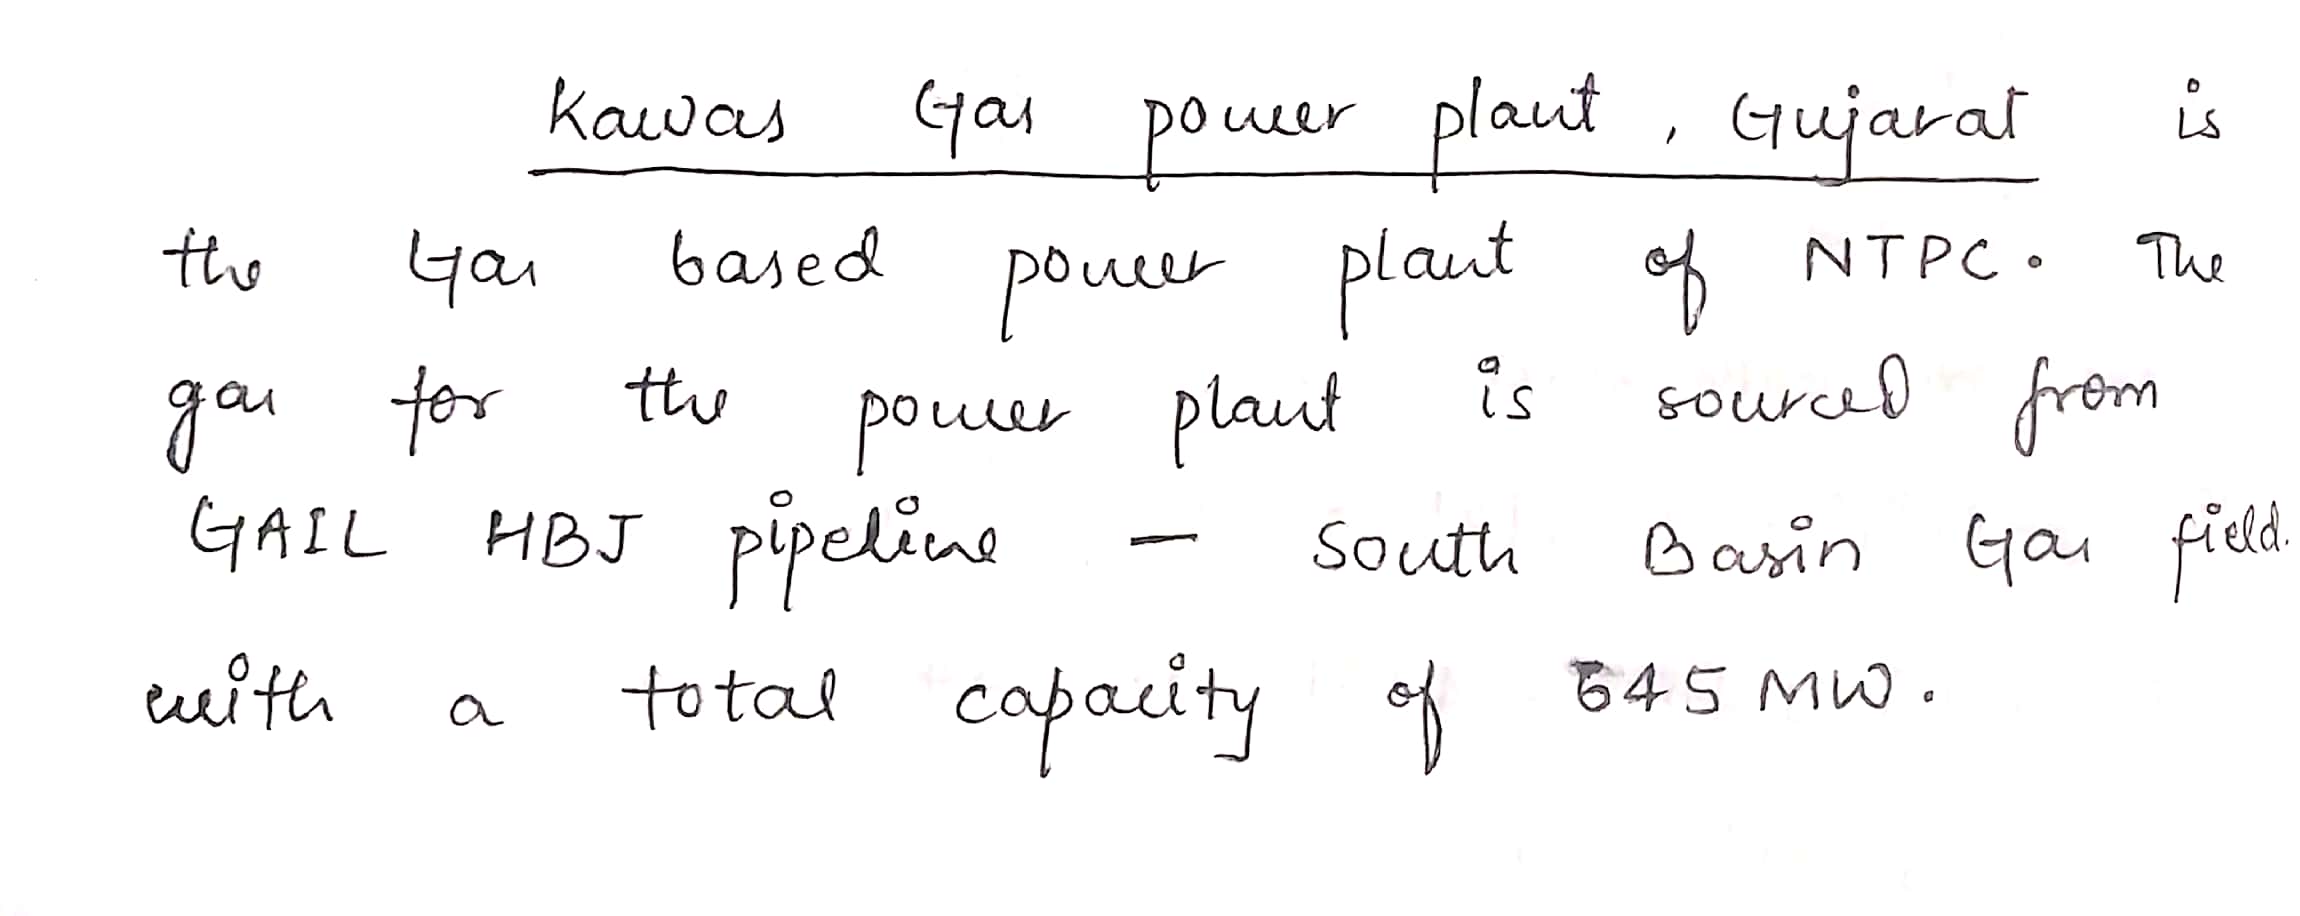 Kawas Gas power plant, Gujarat is
the Gas based power plant of NTPC. The
gas for the power plant is sourced from
GAIL HBJ pipeline - South Basin Gas field.
with a total capacity of 645 MW.